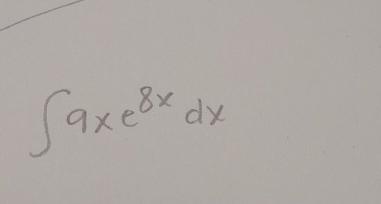 ∫9xe^{8x} dx